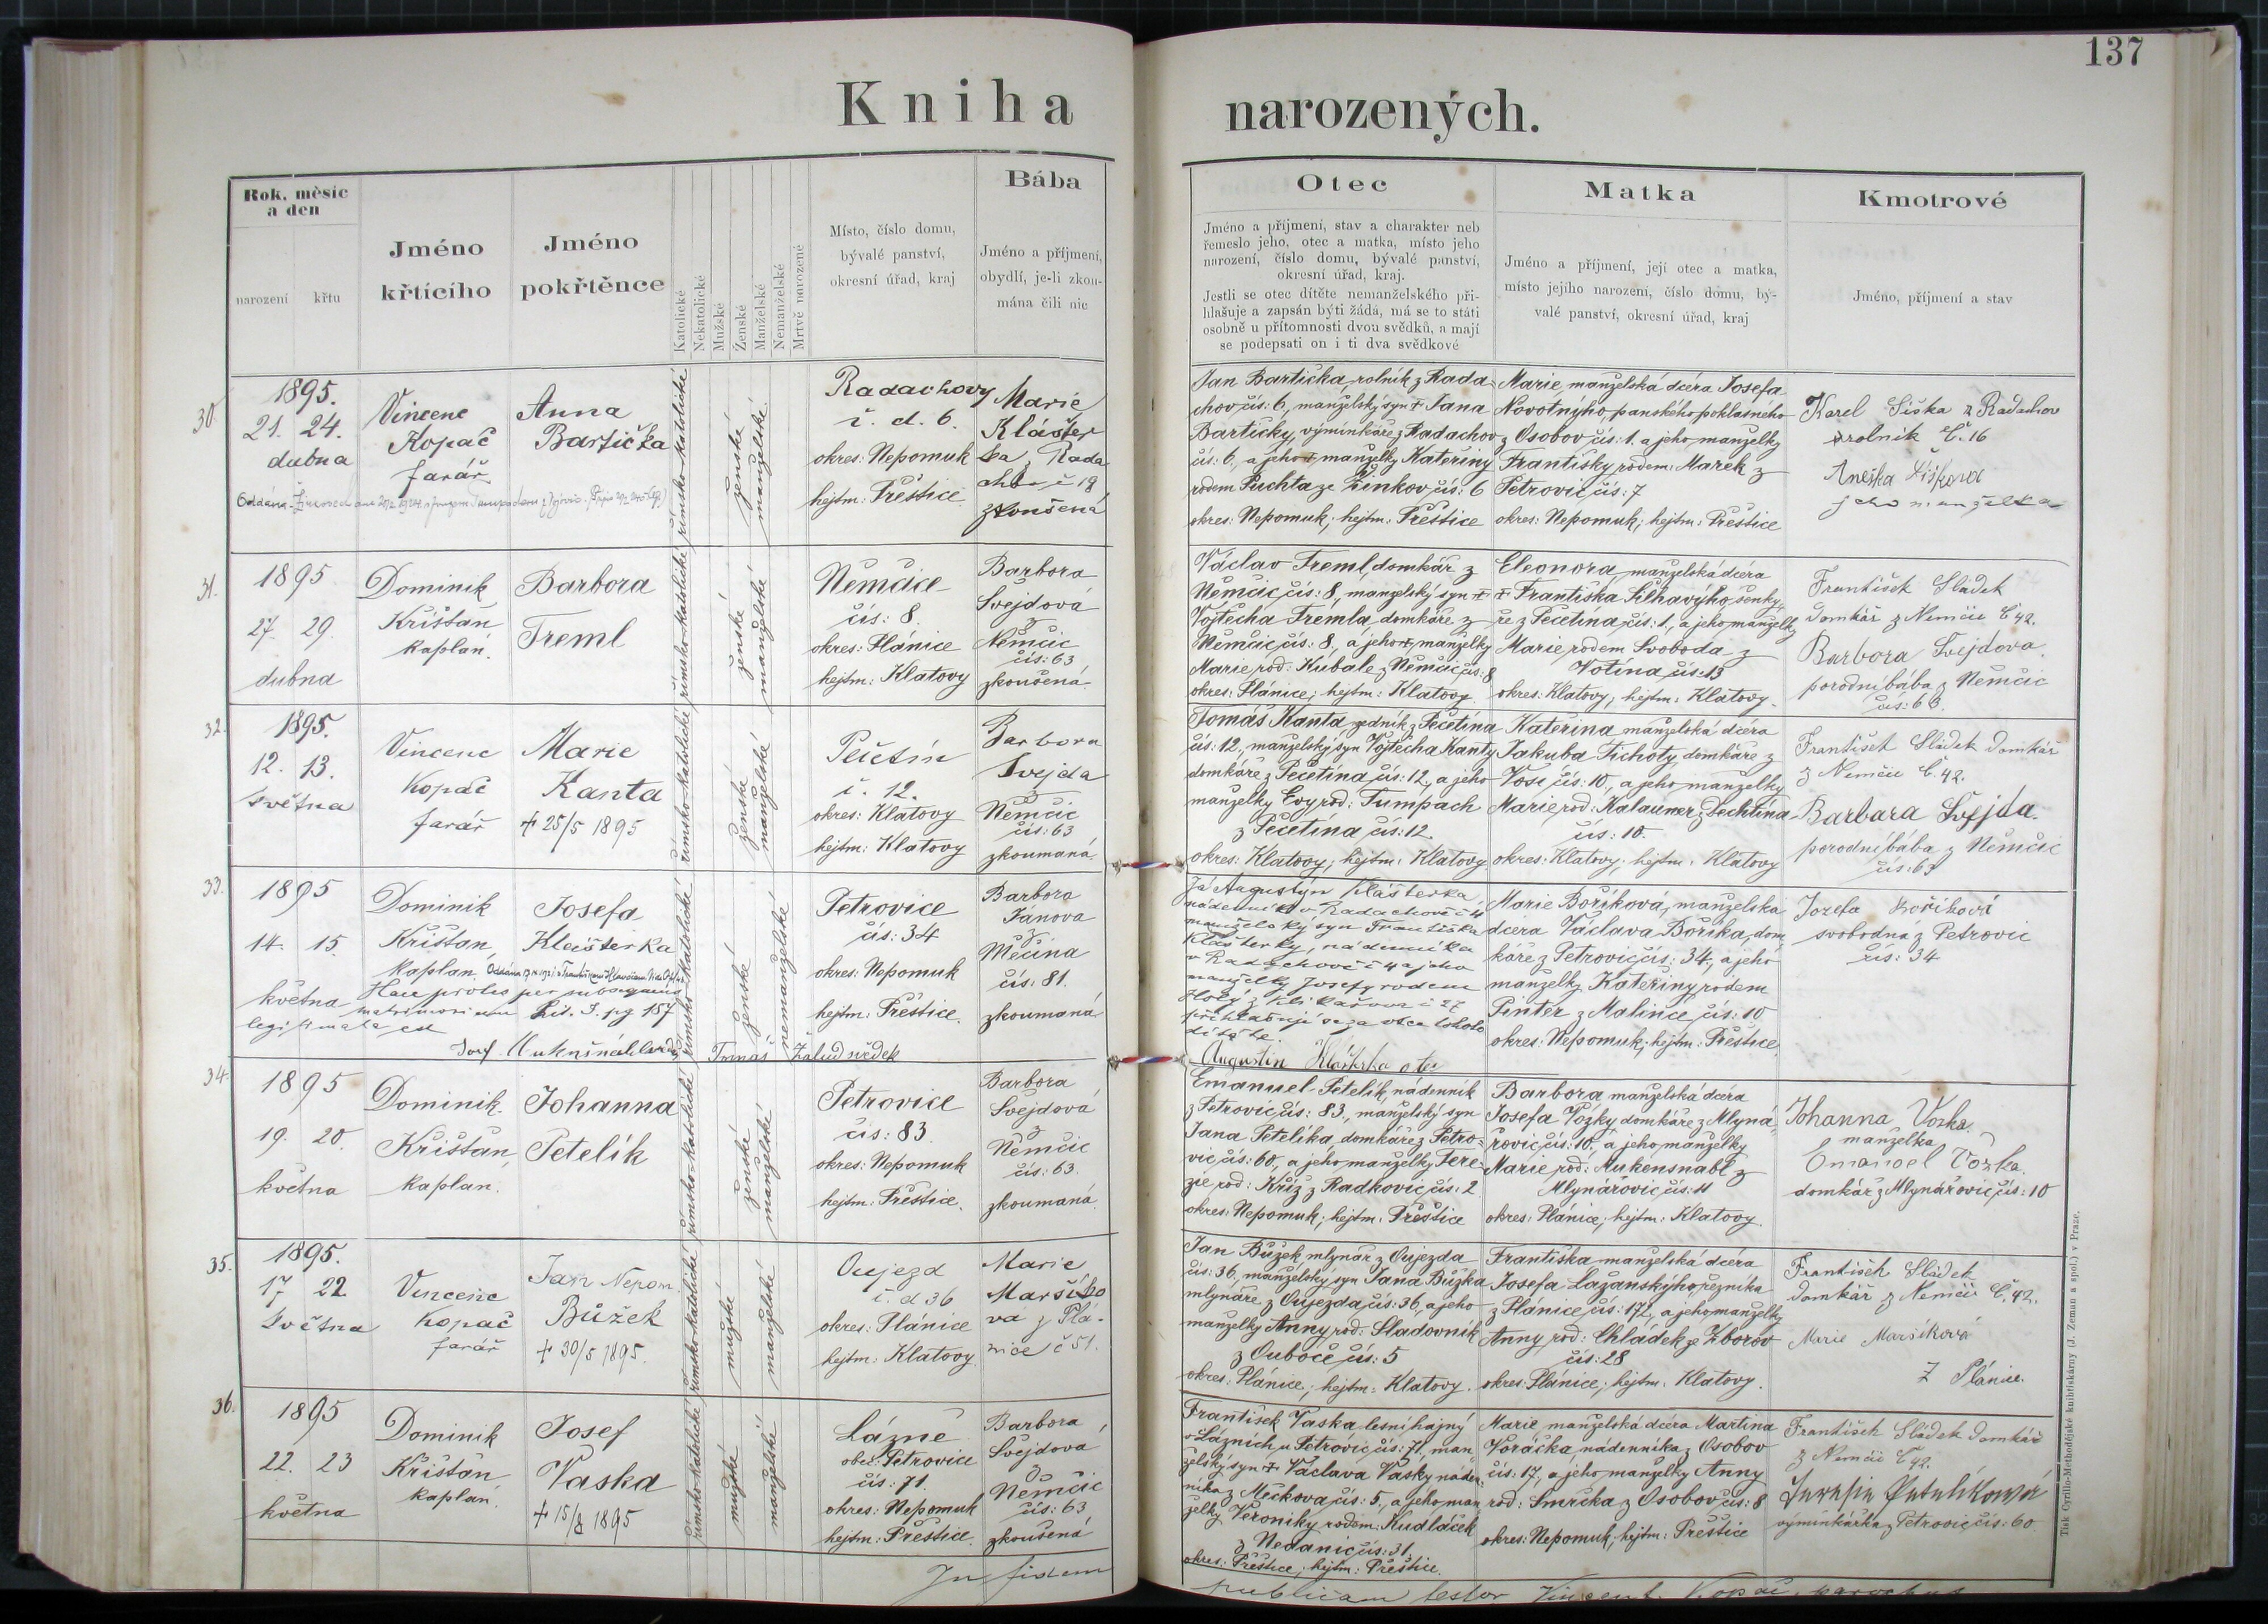 137
Kniha narozených.
Rok, měsíc
a den
narození křtu
Jméno
křtícího
Jméno
pokřtěnce
Katolické
Nekatolické
Mužské
Ženské
Manželské
Nemanželské
Mrtvě narozené
Místo, číslo domu,
bývalé panství,
okresní úřad, kraj
Bába
Jméno a příjmení,
obydlí, je-li zkou-
mána čili nic
Otec
Jméno a příjmení, stav a charakter neb
řemeslo jeho, otec a matka, místo jeho
narození, číslo domu, bývalé panství,
okresní úřad, kraj.
Jestli se otec dítěte nemanželského při-
hlašuje a zapsán býti žádá, má se to státi
osobně u přítomnosti dvou svědků, a mají
se podepsati on i ti dva svědkové
Matka
Jméno a příjmení, její otec a matka,
místo jejího narození, číslo domu, bý-
valé panství, okresní úřad, kraj
Kmotrové
Jméno, příjmení a stav
30.
1895.
21. 24.
dubna
Vincenc
Kopač
farář
Anna
Bartička
římsko-katolické
ženské
manželské
Radachovy
č. d. 6.
okres: Nepomuk
hejtm: Přeštice
Marie
Klášter
ka z Rada
chov č 19
zkoušená
Jan Bartička, rolník z Rada-
chov čís: 6, manželský syn † Jana
Bartičky, výminkáře z Radachov
čís: 6, a jeho † manželky Kateřiny
rodem Puchta ze Žinkov čís: 6
okres: Nepomuk; hejtm: Přeštice
Marie manželská dcera Josefa
Novotnýho, panského poklasného
z Osobov čís: 1. a jeho manželky
Františky rodem: Marek z
Petrovic čís: 7
okres: Nepomuk; hejtm: Přeštice
Karel Šiška z Radachov
rolník č. 16
Anežka Šišková
jeho manželka
31.
1895
27. 29.
dubna
Dominik
Krištan
kaplan.
Barbora
Treml
římsko-katolické
ženské
manželské
Němčice
čís: 8.
okres: Plánice
hejtm: Klatovy
Barbora
Švejdová
z
Němčic
čís: 63
zkoušená
Václav Treml, domkář z
Němčic čís: 8, manželský syn †
Vojtěcha Tremla, domkáře z
Němčic čís: 8., a jeho †, manželky
Marie, rod: Kubale z Němčic čís: 8
okres: Plánice; hejtm: Klatovy
Eleonora, manželská dcera
† Františka Silhavýho, šenky-
ře z Pečetína, čís: 1., a jeho manželky
Marie rodem Svoboda z
Votína čís: 13
okres: Klatovy; hejtm: Klatovy.
František Sládek
domkář z Němčic č 42.
Barbora Švejdova
porodní bába z Němčic
čís: 63.
32.
1895.
12. 13.
května
Vincenc
Kopač
farář
Marie
Kanta
† 25/5 1895
římsko-katolické
ženské
manželské
Pečetín
č. 12.
okres: Klatovy
hejtm: Klatovy
Barbora
Švejda
z
Němčic
čís: 63
zkoumaná
Tomáš Kanta zedník z Pečetína
čís: 12., manželský syn Vojtěcha Kanty
domkáře z Pečetína čís: 12, a jeho
manželky Evy rod: Tumpach
z Pečetína čís: 12.
okres: Klatovy; hejtm: Klatovy
Kateřina manželská dcera
Jakuba Tichoty, domkáře z
Vosi čís: 10., a jeho manželky
Marie rod: Kalauner z Dechtína
čís: 10.
okres: Klatovy; hejtm: Klatovy
František Sládek domkář
z Němčic č. 42.
Barbara Švejda.
porodní bába z Němčic
čís: 63
33.
1895
14. 15.
května
Dominik
Krištan,
kaplan
Josefa
Klášterka
Haec proles per subsequens
matrimonium Lit. I. pg 157
legitimata est
římsko-katolické
ženské
nemanželské
Petrovice
čís: 34
okres: Nepomuk
hejtm: Přeštice.
Barbora
Janova
z
Měčína
čís: 81.
zkoumaná
Já Augustýn Klášterka
nádenník v Radachově č 4
manželský syn Františka
Klášterky, nádenníka
v Radachově č 4 a jeho
manželky Josefy rodem
přihlašuji se za otce tohoto
dítěte
Augustin Klášterka otec
Tomáš Žalud svědek
Marie Boříková, manželská
dcera Václava Boříka, dom-
káře z Petrovic čís: 34., a jeho
manželky Kateřiny rodem
Pinter z Malinice čís: 10
okres: Nepomuk; hejtm: Přeštice
Jozefa Boříková
svobodna z Petrovic
čís: 34
34.
1895
19. 20.
května
Dominik
Krištan,
kaplan.
Johanna
Petelík
římsko-katolické
ženské
manželské
Petrovice
čís: 83.
okres: Nepomuk
hejtm: Přeštice.
Barbora
Švejdová
z
Němčic
čís: 63.
zkoumaná
Emanuel Petelík, nádenník
z Petrovic čís: 83., manželský syn
Jana Petelíka, domkáře z Petro-
vic, čís: 60., a jeho manželky Tere-
zie rod: Kříž z Radkovic, čís: 2
okres: Nepomuk; hejtm: Přeštice
Barbora manželská dcera
Josefa Vozky domkáře z Mlyná-
řovic čís: 10., a jeho manželky
Marie, rod: Mukensnabl z
Mlynářovic čís: 11
okres: Plánice; hejtm: Klatovy.
Johanna Vozka.
manželka
Emanoel Vozka.
domkář z Mlynářovic čís: 10
35.
1895.
17 22
května
Vincenc
Kopač
farář
Jan Nepom.
Bůžek
† 30/5 1895.
římsko-katolické
mužské
manželské
Oujezd
č. d 36
okres: Plánice
hejtm: Klatovy
Marie
Maršíko
va z Plá-
nice č 51.
Jan Bůžek, mlynář z Oujezda
čís: 36, manželský syn Jana Bůžka
mlynáře z Oujezda čís: 36, a jeho
manželky Anny, rod: Sladovník
z Oubočě čís: 5
okres: Plánice; hejtm: Klatovy.
Františka manželská dcera
Josefa Lažanskýho, řezníka
z Plánice čís: 172, a jeho manželky
Anny rod: Chládek ze Zborov
čís: 28
okres: Plánice; hejtm: Klatovy.
František Sládek
domkář z Němčic č. 42.
Marie Maršíková
Z Plánice.
36.
1895
22. 23
května
Dominik
Krištan
kaplan.
Josef
Vaska
† 15/8 1895
římsko-katolické
mužské
manželské
Lázně
obec: Petrovice
čís: 71.
okres: Nepomuk
hejtm: Přeštice.
Barbora
Švejdová
z
Němčic
čís: 63
zkoušená
František Vaska lesní hajný
v Lázních u Petrovic čís: 71., man-
želský syn † Václava Vasky náden-
níka z Mečkova, čís: 5., a jeho man-
želky Veroniky rodem: Kudláček
z Nedanic čís: 31.
okres: Přeštice; hejtm: Přeštice.
Marie, manželská dcera Martina
Voráčka nádenníka z Osobov
čís: 17, a jeho manželky Anny
rod: Smrčka z Osobov čís: 8
okres: Nepomuk, hejtm: Přeštice
František Sládek domkář
z Němčic č 42.
výminkářka z Petrovic čís: 60
In fidem
publicam testor Vincent. Kopač, parochus
Tisk Cyrillo-Methodějské knihtiskárny (J. Zeman a spol.) v Praze.